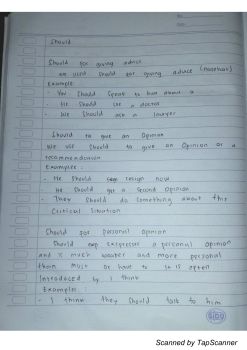 Should
Should for giving advice
we used Should for giving advice (nasehat)
Example:
- You Should Speak to him about a
- He Should see a doctor
- We Should ask a lawyer
Should to give an Opinion
We use Should to give an Opinion or a
recommendation
Examples :
- He Should resign now
He Should get a Second Opinion
- They Should do Something about this
Critical Situation
Should for personal opinion
Should expresses a personal opinion
and is much weaker and more personal
than must or have to It is often
Introduced by I think
Examples :
- I think they Should talk to him
SIDU
Scanned by TapScanner